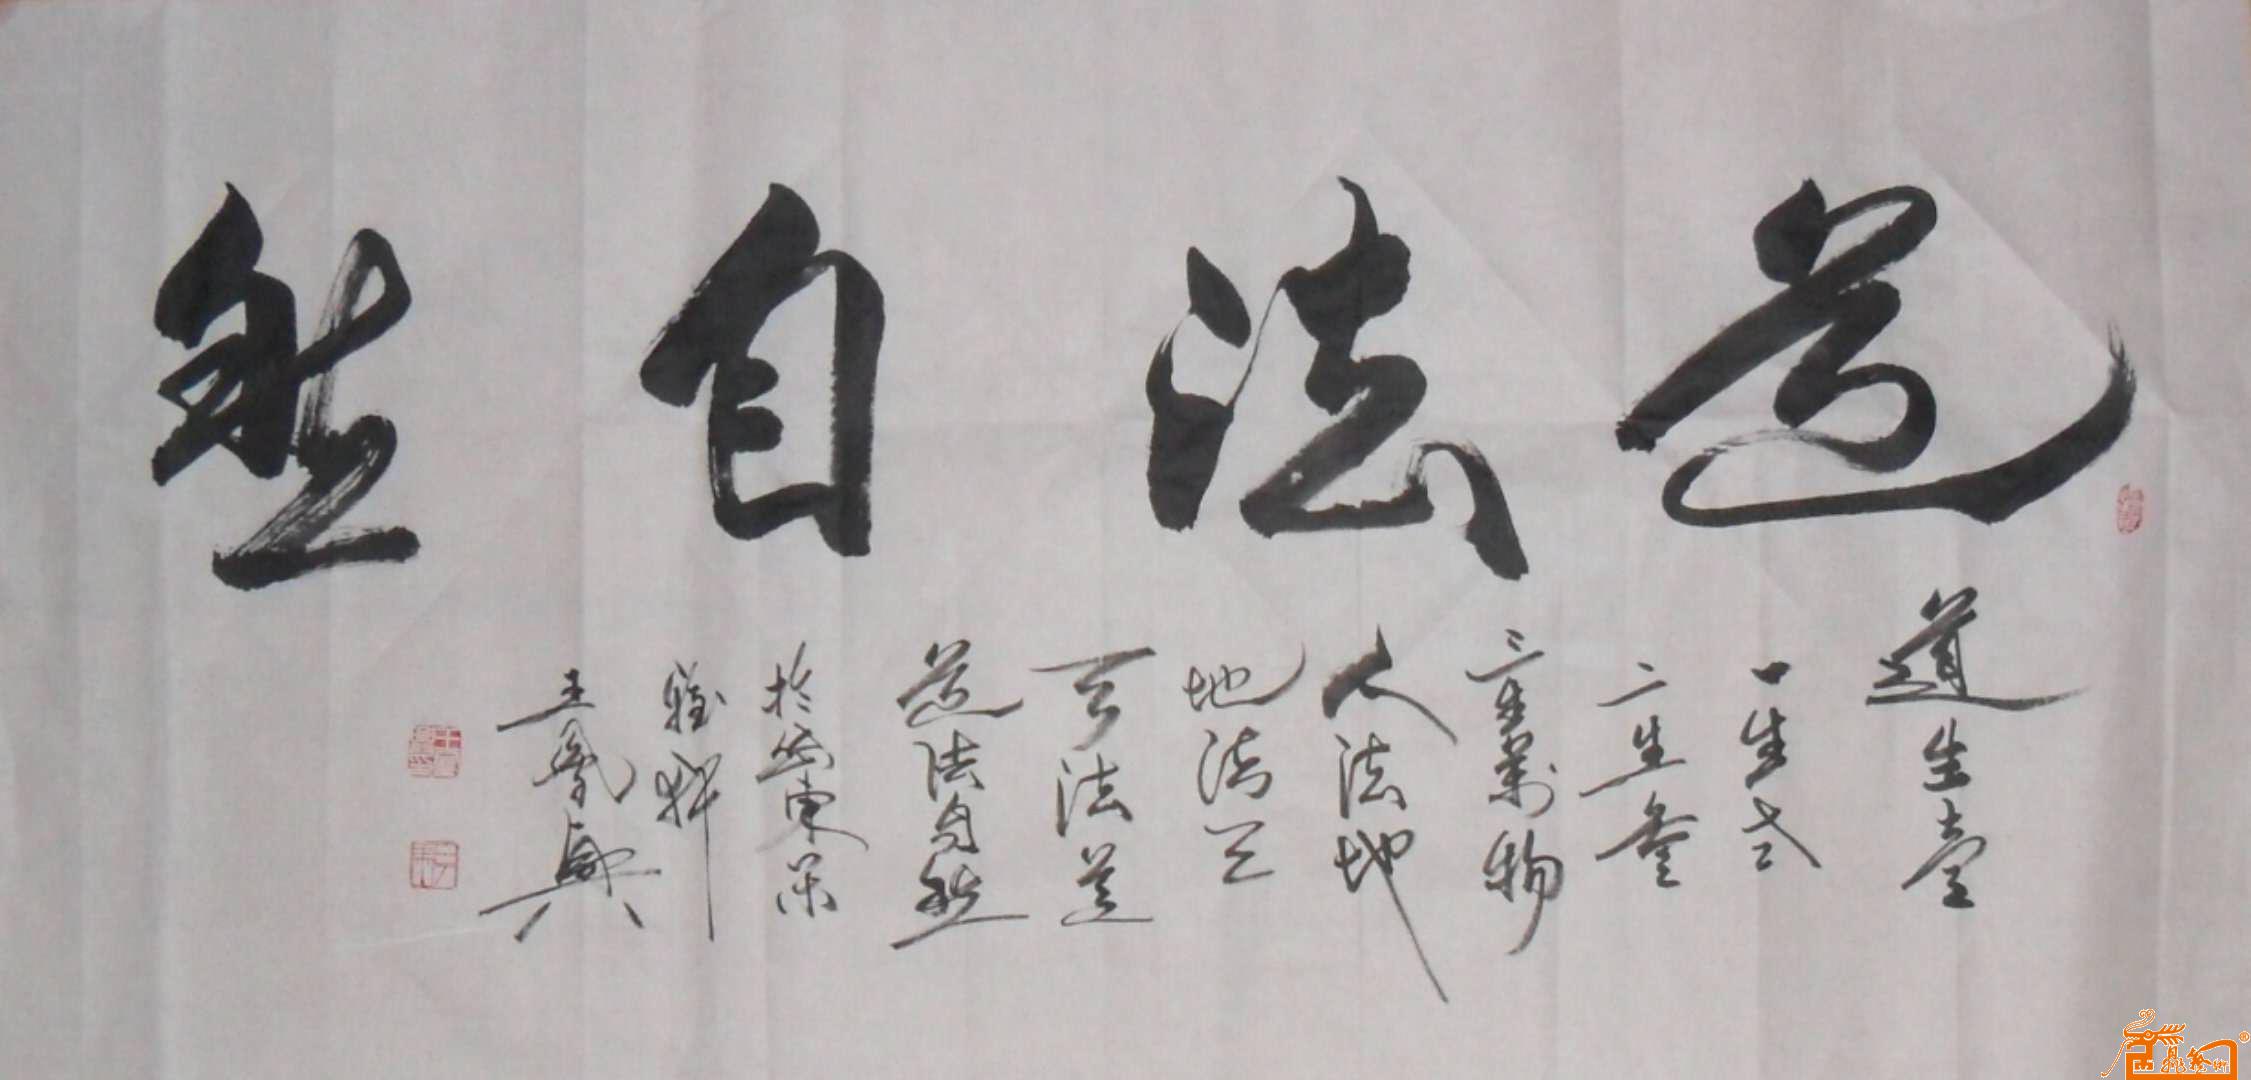 道法自然
道生壹
一生弍
二生叁
三生萬物
人法地
地法天
天法道
道法自然
於山東
王鳳興